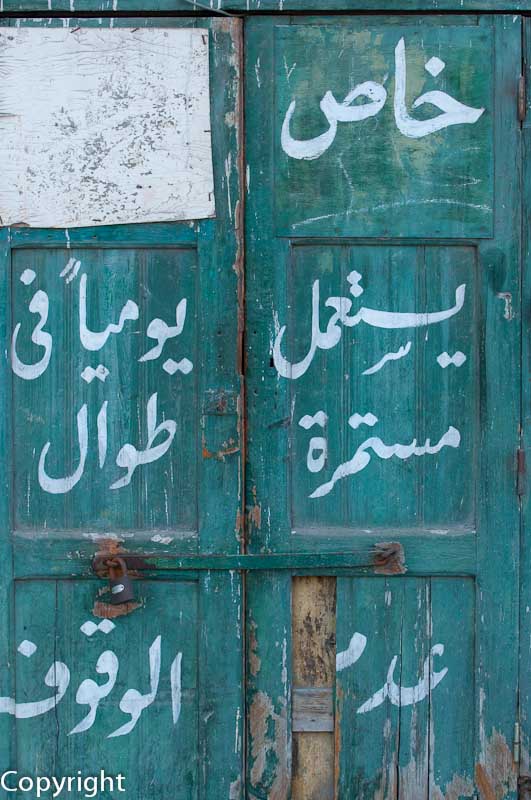 خاص
يستعمل يومياً فى
مستمرة طوال
عدم الوقوف
Copyright